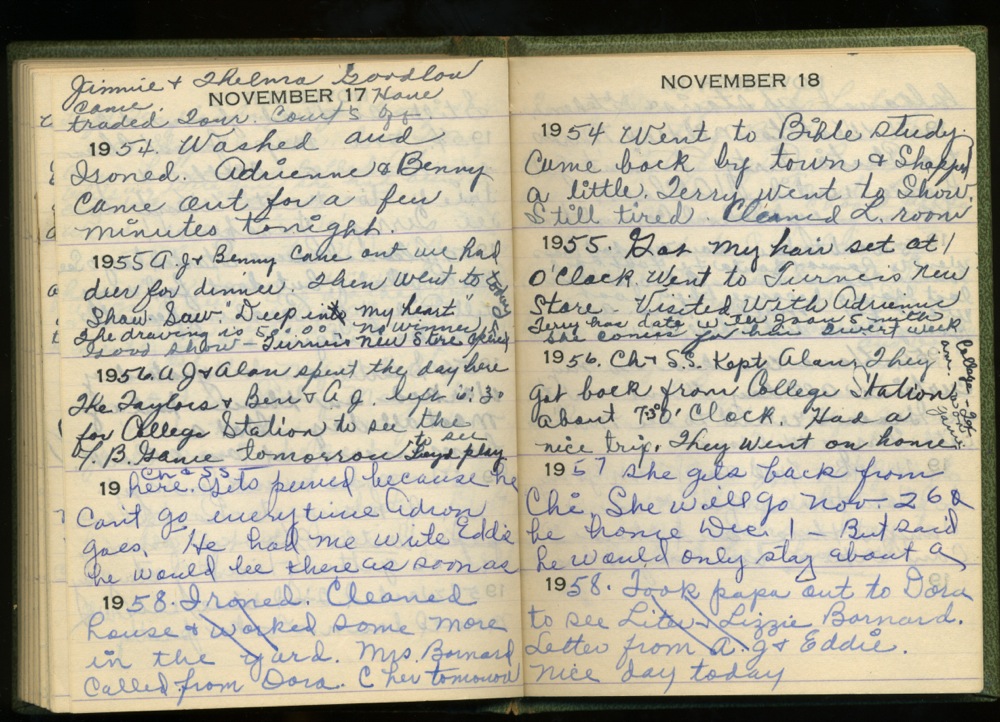 Jimmie & Thelma Goodlow
came.
NOVEMBER 17 Have
traded Tour. Court's
1954 Washed and
Ironed. Adrienne & Benny
came out for a few
minutes tonight.
1955 A.J & Benny came out we had
deer for dinner. Then went to
Show. Saw "Deep in my heart"
The drawing is 58.00 No winner
Good show - Turner's New Store opened
today
1956. A J & Alan spent the day here
The Taylors & Ben & A.J. left 5:30
for College Station to see the
T. B. Game tomorrow to see Loyd play
Ch & SS
19 here. Gets peeved because he
Can't go everytime Adron
goes. He had me write Eddie
he would be there as soon as
1958. Ironed. Cleaned
house & worked some more
in the yard. Mrs. Barnard
Called from Dora. C her tomorrow
NOVEMBER 18
1954 Went to Bible study.
Came back by town & Shopped
a little. Terry went to Show.
Still tired. Cleaned L. room
1955. Got my hair set at 1
O'Clock. Went to Turner's New
Store. Visited With Adrienne
Terry has date w Joan Smith
She comes for hair every week
1956. Ch & S.S. Kept Alan, They
got back from College Station
about 7:30 O'Clock. Had a
nice trip. They went on home
College
1957 she gets back from
Chi. She will go Nov. 26 &
be home Dec. 1 - But said
he would only stay about a
1958. Took papa out to Dora
to see Lizzie Barnard.
Letter from A.J & Eddie.
nice day today